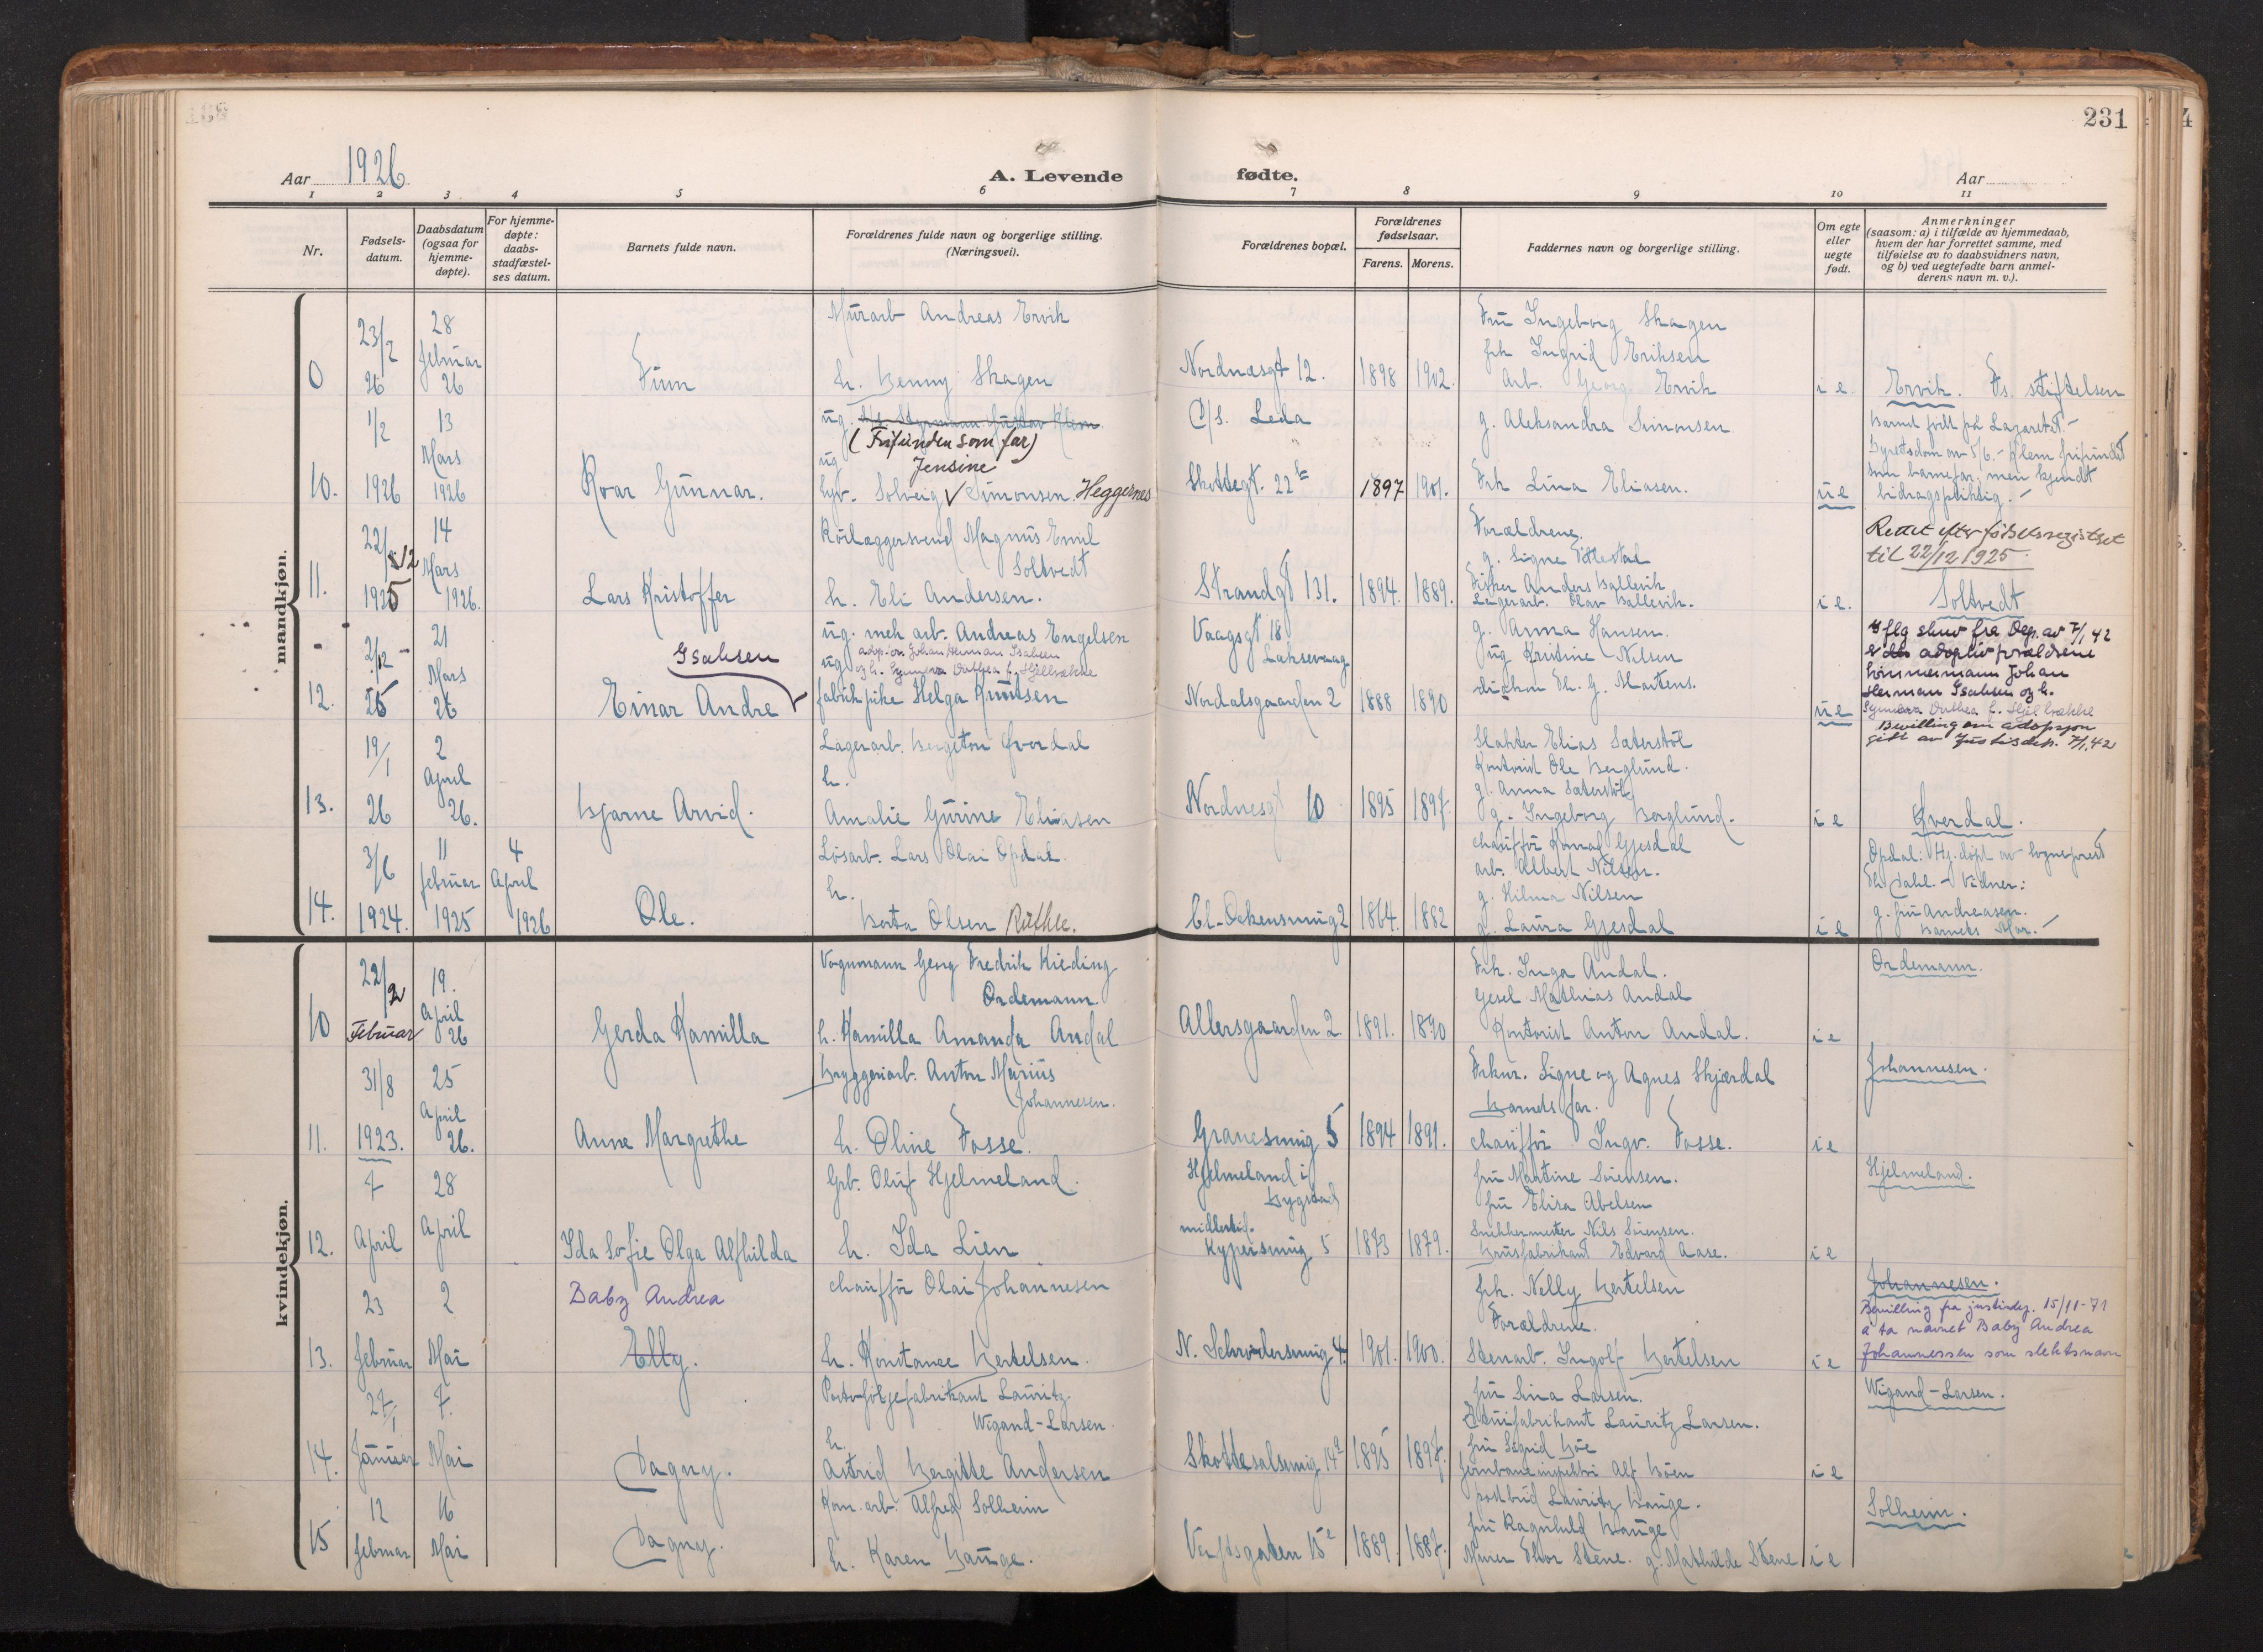 231
Aar 1926
A. Levende fødte.
Aar
1 2 3 4 5 6 7 8 9 10 11
Nr.
Fødsels-
datum.
Daabsdatum
(ogsaa for
hjemme-
døpte).
For hjemme-
døpte:
daabs-
stadfæstel-
ses datum.
Barnets fulde navn.
Forældrenes fulde navn og borgerlige stilling.
(Næringsvei).
Forældrenes bopæl.
Forældrenes
fødselsaar.
Farens. Morens.
Faddernes navn og borgerlige stilling.
Om egte
eller
uegte
født.
Anmerkninger
(saasom: a) i tilfælde av hjemmedaab,
hvem der har forrettet samme, med
tilføielse av to daabsvidners navn,
og b) ved uegtefødte barn anmel-
derens navn m. v.).
mandkjøn.
0
23/2
26
28
februar
26
Finn
Murarb Andreas Ervik
h. Henny Skagen
Nordnæsgt 12.
1898 1902.
Fru Ingeborg Skagen
frk Ingrid Eriksen
Arb. Georg Ervik
i e
Ervik. Fs. stiftelsen
10.
1/2
1926
13
Mars
1926
Roar Gunnar.
ug. Styrmann Gustav Klem
(Frifunden som far)
ug Jensine
Syr. Solveig √ Simonsen. Heggernes
C/s. Leda
Skottegt. 22b
1897 1901.
g. Aleksandra Simonsen
Frk Lina Eliasen.
u e
Barnet født på Lazarettet.-
Byretsdom av 5/6. - Klem frifundet
som barnefar, men kjendt
bidragspliktig. -
11.
22/12
1925
14
Mars
1926.
Lars Kristoffer
Rørlæggersvend Magnus Emil
Soltvedt
h. Eli Andersen.
Strandgt 131.
1894. 1889.
Forældrene.
g. Signe Titlestad
Fisker Anders Ballevik
Lagerarb. Olav Ballevik.
i e.
Rettet efter fødselsregistret
til 22/12 1925
Soltvedt
12.
2/12
25
21
Mars
26
Isaksen
Einar Andre
ug. mek arb. Andreas Engelsen
adop.for. Johan Herman Isaksen
og h. Synneva Dorthea f. Hjellbrække
ug
fabrikpike Helga Knutsen
Vaagsgt 18
Laksevaag
Nordalsgaarden 2
1888 1890
g. Anna Hansen.
ug Kristine Nilsen
diakon Th. G. Martens.
u e
Iflg skriv fra Dep. av 7/1 42
er adoptivforældrene
tømmermann Johan
Herman Isaksen og h.
Synneva Dorthea f. Hjellbrække
Bevilling om adopsjon
gitt av Justisdep. 7/1.42
13.
19/1
26
2
April
26.
Bjarne Arvid.
Lagerarb. Bergeton Øverdal
h.
Amalie Gurine Eliasen
Nordnesgt 10
1895 1897.
Slakter Elias Sæterstøl
Kontorist Ole Berglund.
g. Anna Sæterstøl
g. Ingeborg Berglund.
i e
Øverdal.
14.
3/6
1924.
11
februar
1925
4
April
1926
Ole.
Løsarb. Lars Olai Opdal.
h.
Berta Olsen Røthle.
Cl. Ockensmug 2
1864. 1882
chauffør Konrad Gjesdal
arb. Albert Nilsen.
g. Hilma Nilsen
g. Laura Gjesdal
i e
Opdal: Hj. døpt av sogneprest
Th. Dahl. - Vidner:
g. fru Andreasen.
Barnets Mor. -
kvindekjøn.
10
22/2
Februar
19.
April
26
Gerda Kamilla
Vognmann Georg Fredrik Kieding
Ordemann.
h. Kamilla Amanda Andal
Allersgaarden 2.
1891. 1890
Frk. Inga Andal.
Gesel Mathias Andal
Kontorist Anton Andal.
i e
Ordemann.
11.
31/8
1923.
25
April
26.
Anne Margrethe
Bryggeriarb. Anton Marius
Johannesen.
h. Oline Fosse.
Granesmug 5
1894 1891.
Frknr. Signe og Agnes Skjærdal
Barnets far.
chauffør Ingv. Fosse.
i e
Johannesen.
12.
7
April
28
April
Ida Sofie Olga Alfhilda
Grb. Oluf Hjelmeland.
h. Ida Lien
Hjelmeland i
Bygstad
midlertid.
Kypersmug 5
1873 1879.
fru Martine Sørensen.
fru Elisa Abelsen
Snekkermester Nils Sørensen.
Brusfabrikant Edvard Aase.
i e
Hjelmeland.
13.
23
februar
2
Mai
Baby Andrea
Elly.
chauffør Olai Johannesen
h. Konstance Bertelsen.
N. Schrødersmug 4.
1901. 1900.
frk. Nelly Bertelsen
Forældrene.
Stenarb. Ingolf Bertelsen
i e
Johannesen.
Bevilling fra justisdep. 15/11-71
å ta navnet Baby Andrea
Johannessen som slektsnavn
14.
27/1
Januar
7.
Mai
Dagny.
Portefølgefabrikant Lauritz
Wigand-Larsen.
h.
Astrid Bergitte Andersen
Skottesalsmug 14a
1895 1897.
fru Lina Larsen.
Etuifabrikant Lauritz Larsen.
fru Sigrid Bøe
jernbaneinspektør Alf Bøen
i e
Wigand-Larsen.
15
12
februar
16
Mai
Dagny.
Kom. arb. Alfred Solheim
h. Karen Hauge.
Verftsgaten 15
1889. 1887.
postbud Lauritz Hauge.
fru Ragnhild Hauge
Murer Thor Stene. g. Mathilde Stene
i e
Solheim.